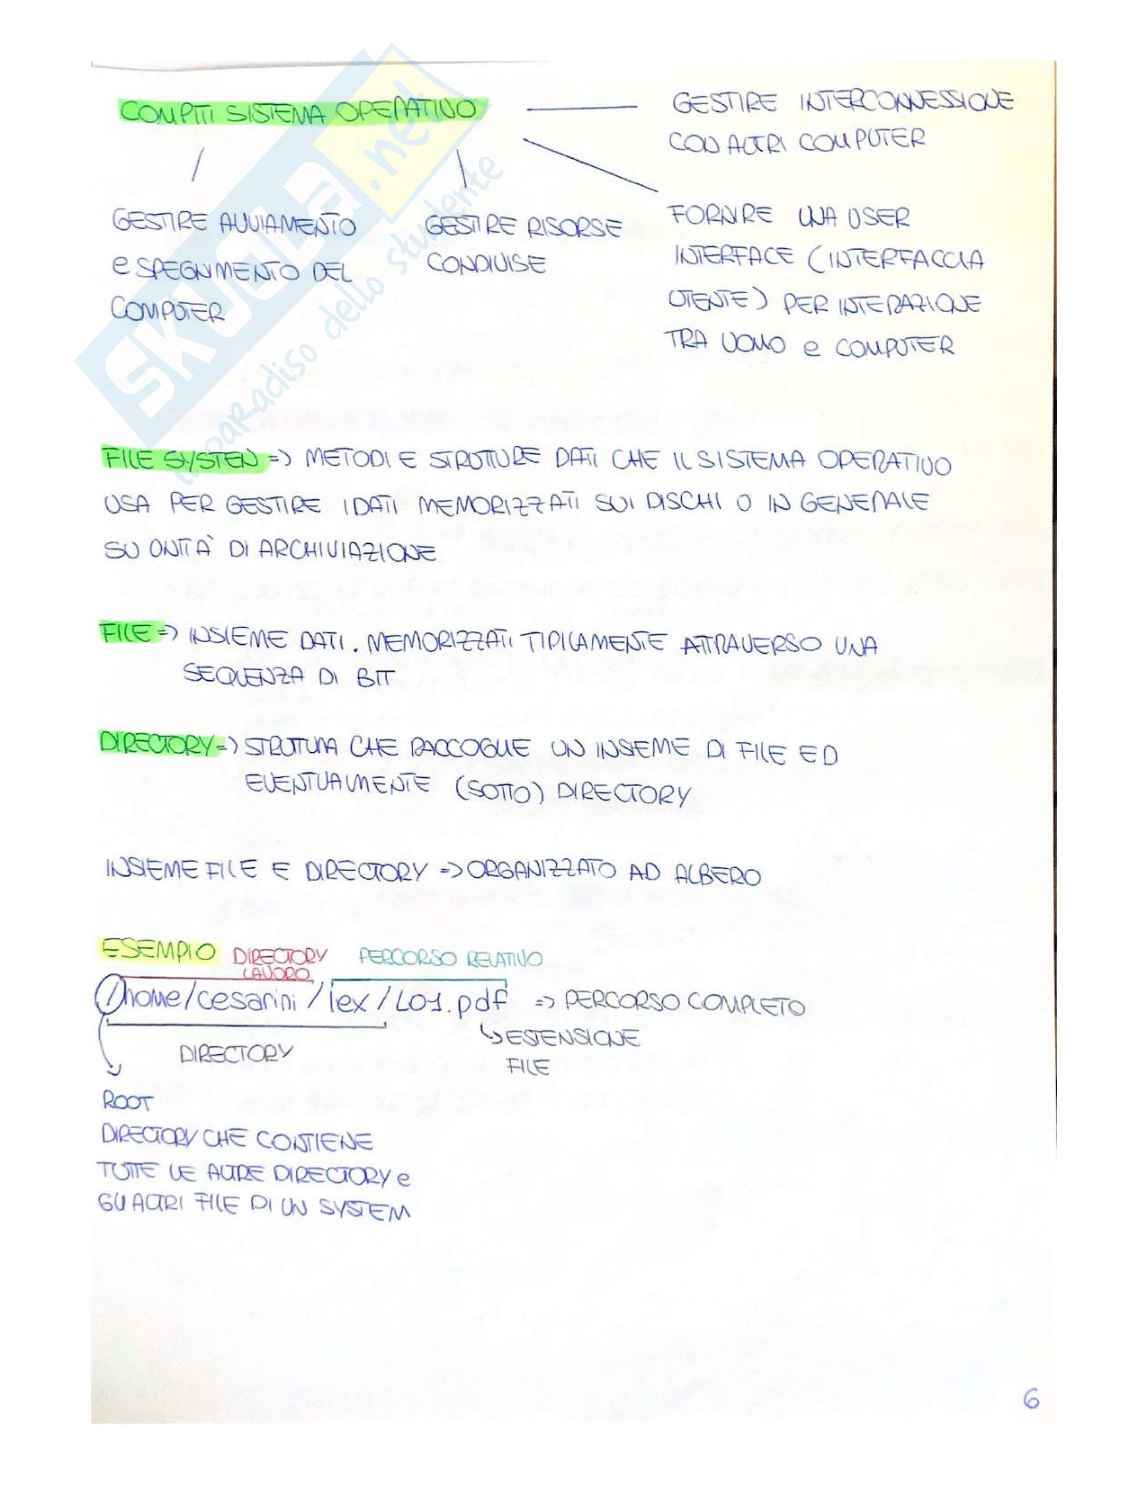 COMPITI SISTEMA OPERATIVO
GESTIRE INTERCONNESSIONE
CON ALTRI COMPUTER
GESTIRE AVVIAMENTO
e SPEGNIMENTO DEL
COMPUTER
GESTIRE RISORSE
CONDIVISE
FORNIRE UNA USER
INTERFACE (INTERFACCIA
UTENTE) PER INTERAZIONE
TRA UOMO e COMPUTER
SKUOLA.net
il paradiso dello studente
FILE SYSTEM => METODI E STRUTTURE DATI CHE IL SISTEMA OPERATIVO
USA PER GESTIRE I DATI MEMORIZZATI SUI DISCHI O IN GENERALE
SU UNITÀ DI ARCHIVIAZIONE
FILE => INSIEME DATI. MEMORIZZATI TIPICAMENTE ATTRAVERSO UNA
SEQUENZA DI BIT
DIRECTORY => STRUTTURA CHE RACCOGLIE UN INSIEME DI FILE ED
EVENTUALMENTE (SOTTO) DIRECTORY
INSIEME FILE E DIRECTORY => ORGANIZZATO AD ALBERO
ESEMPIO DIRECTORY LAVORO PERCORSO RELATIVO
/home/cesarini/lex/L01.pdf => PERCORSO COMPLETO
DIRECTORY
ESTENSIONE
FILE
ROOT
DIRECTORY CHE CONTIENE
TUTTE LE ALTRE DIRECTORY e
GLI ALTRI FILE DI UN SYSTEM
6